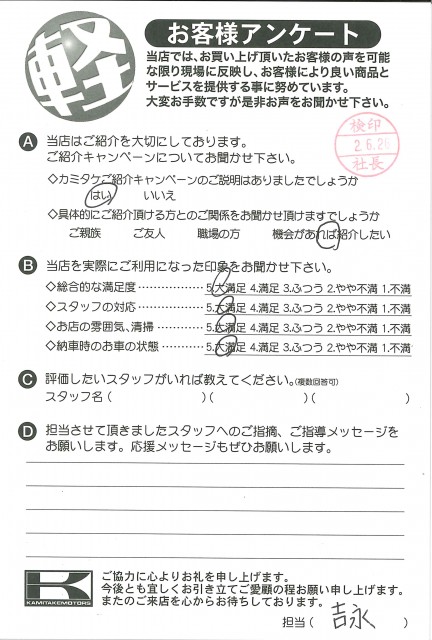 軽
お客様アンケート
当店では、お買い上げ頂いたお客様の声を可能
な限り現場に反映し、お客様により良い商品と
サービスを提供する事に努めています。
大変お手数ですが是非お声をお聞かせ下さい。
検印
2.6.26
社長
A 当店はご紹介を大切にしております。
ご紹介キャンペーンについてお聞かせ下さい。
◇カミタケご紹介キャンペーンのご説明はありましたでしょうか
はい いいえ
◇具体的にご紹介頂ける方とのご関係をお聞かせ頂けますでしょうか
ご親族 ご友人 職場の方 機会があれば紹介したい
B 当店を実際にご利用になった印象をお聞かせ下さい。
◇総合的な満足度 ················ 5.大満足 4.満足 3.ふつう 2.やや不満 1.不満
◇スタッフの対応 ················ 5.大満足 4.満足 3.ふつう 2.やや不満 1.不満
◇お店の雰囲気、清掃 ·········· 5.大満足 4.満足 3.ふつう 2.やや不満 1.不満
◇納車時のお車の状態 ·········· 5.大満足 4.満足 3.ふつう 2.やや不満 1.不満
C 評価したいスタッフがいれば教えてください。(複数回答可)
スタッフ名 ( )( )( )
D 担当させて頂きましたスタッフへのご指摘、ご指導メッセージを
お願いします。応援メッセージもぜひお願いします。
K
KAMITAKEMOTORS
ご協力に心よりお礼を申し上げます。
今後とも宜しくお引き立てご愛顧の程お願い申し上げます。
またのご来店を心からお待ちしております。
担当 ( 吉永 )